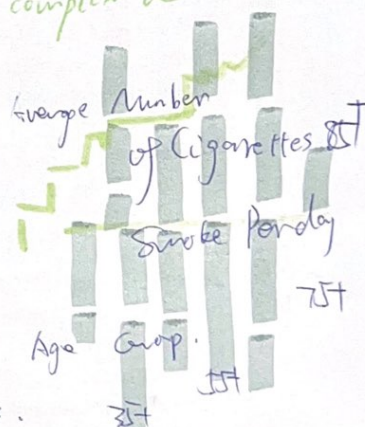 complex
Average Number
of Cigarettes 85+
Smoke Perday
75+
Age Group.
55+
35+